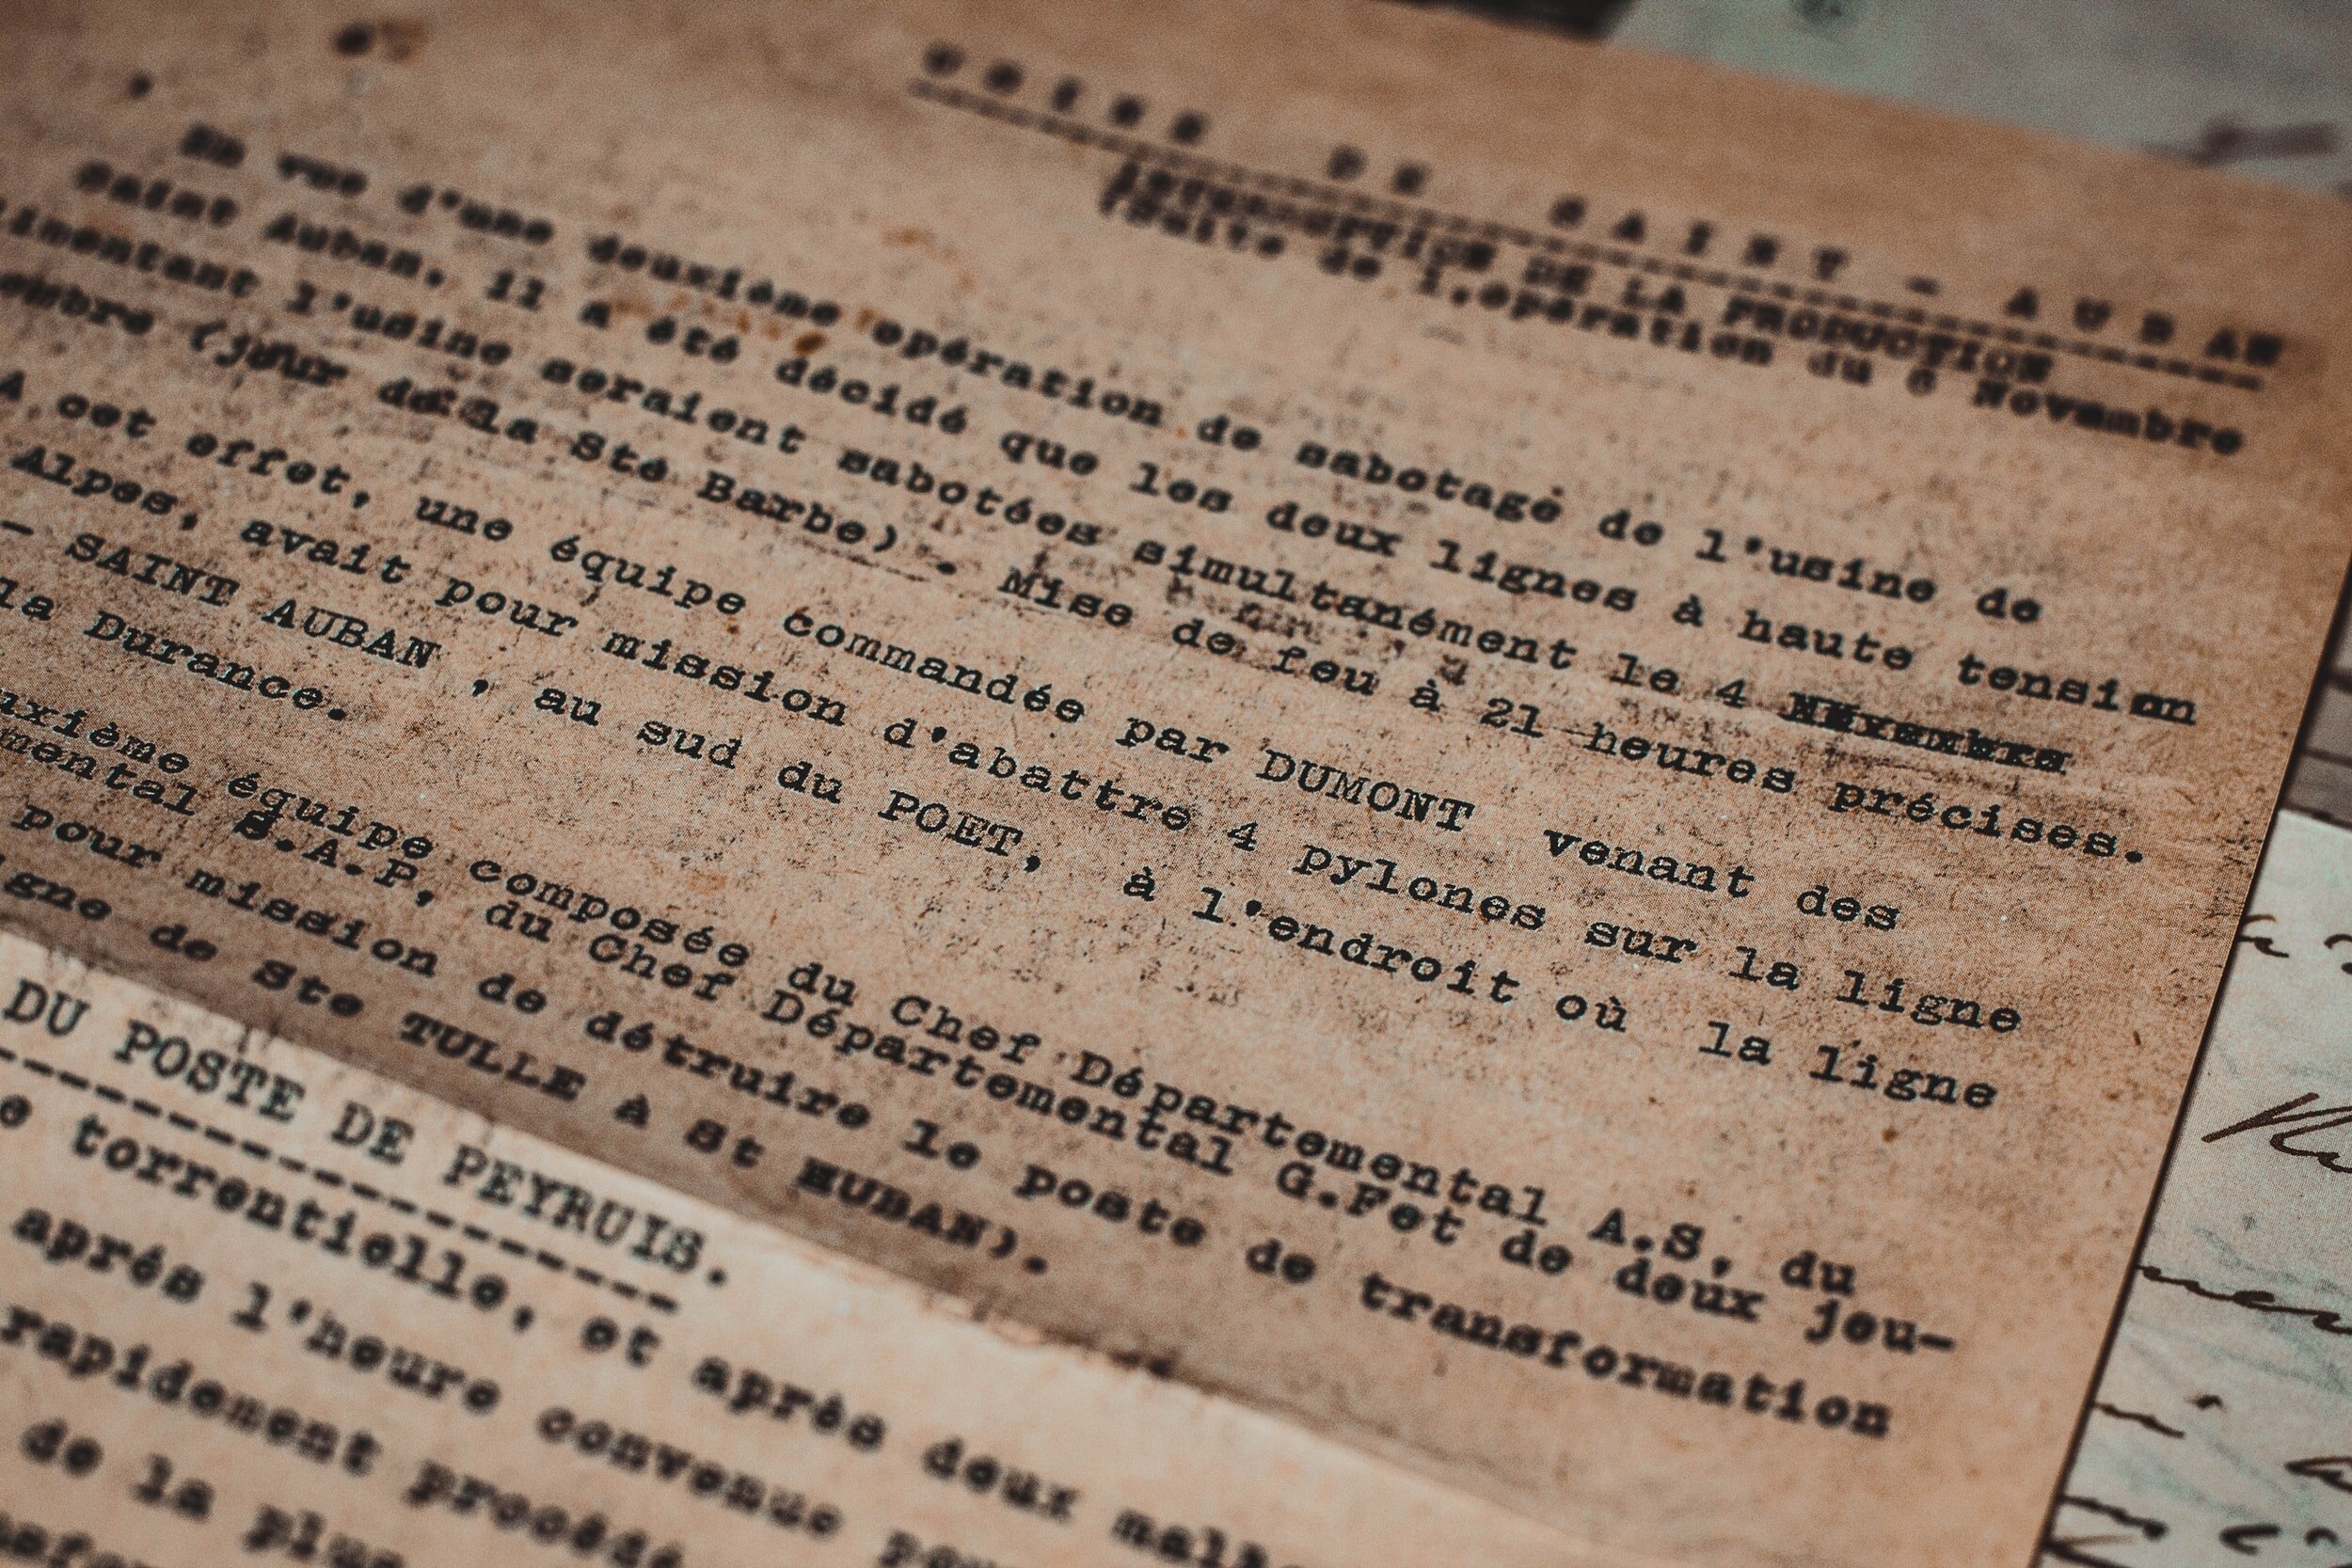 USINE DE SAINT - AUBAN
INTERRUPTION DE LA PRODUCTION
(Suite de l'opération du 6 Novembre
En vue d'une deuxième opération de sabotage de l'usine de
Saint Auban, il a été décidé que les deux lignes à haute tension
imentant l'usine seraient sabotées simultanément le 4
embre (jour de la Ste Barbe) - Mise de feu à 21 heures précises.
A cet effet, une équipe commandée par DUMONT venant des
Alpes, avait pour mission d'abattre 4 pylones sur la ligne
- SAINT AUBAN , au sud du POET, à l'endroit où la ligne
la Durance.
uxième équipe composée du Chef Départemental A.S, du
mental S.A.P, du Chef Départemental G.F et de deux jeu-
pour mission de détruire le poste de transformation
igne de Ste TULLE à St AUBAN).
DU POSTE DE PEYRUIS.
e torrentielle, et après deux malh
après l'heure convenue pou
rapidement procédé
de la plus
nsfor